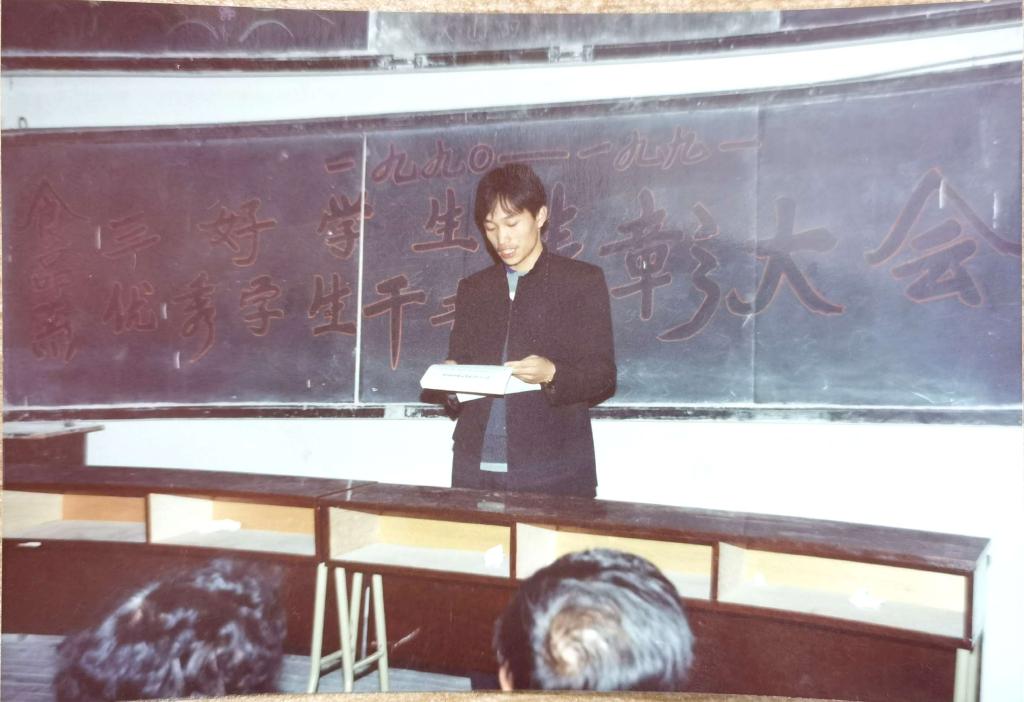 一九九〇——一九九一
三好学生
表彰大会
优秀学生干